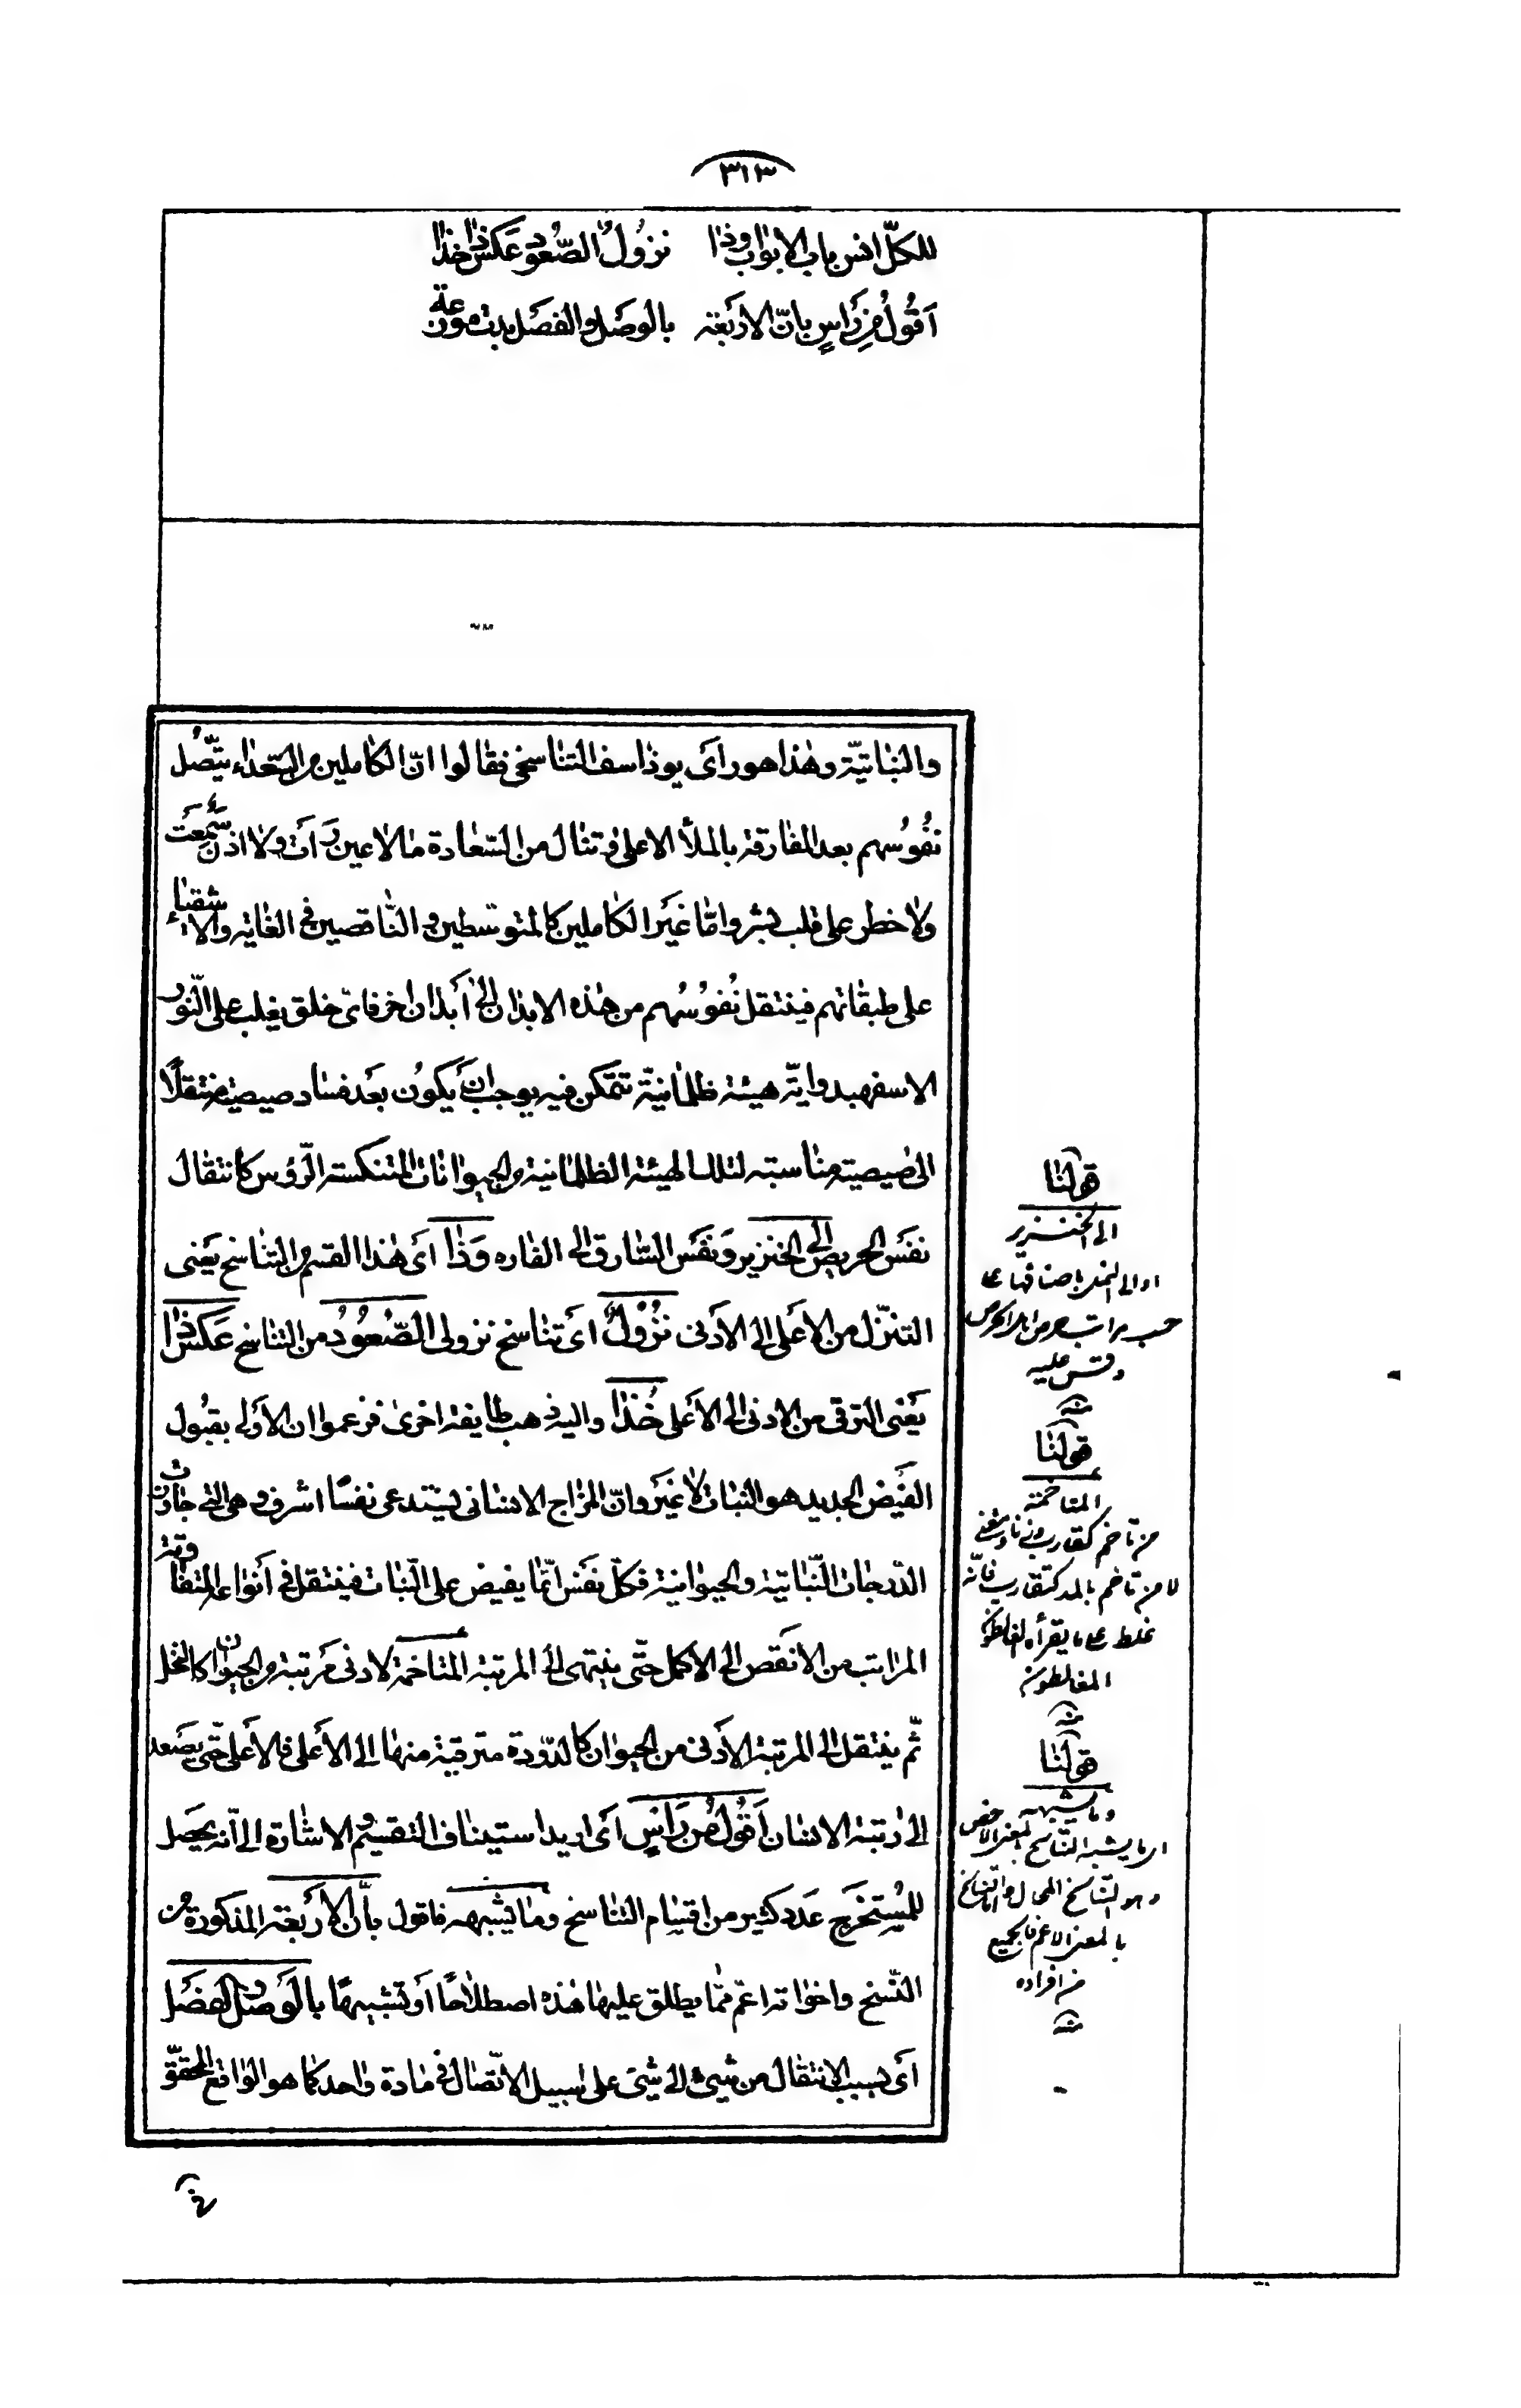 ٣١٣
للكلّ انس باب الابواب وذا نزول الصّعود عكس ذا خذا
اقول من راس بانّ الاربعة بالوصل والفصل بدت منوّعة
والنباتيّة وهذا هو راى يوذاسف التناسخى فقالوا انّ الكاملين من السّعداء يتّصل
نفوسهم بعد المفارقة بالملأ الاعلى وتنال من السّعادة ما لا عين رأت ولا اذن سمعت
ولا خطر على قلب بشر وامّا غير الكاملين كالمتوسّطين والنّاقصين فى الغاية والاشقياء
على طبقاتهم فينتقل نفوسهم من هذه الابدان الى أبدان اخر فاىّ خلق يغلب على النّور
الاسفهبد وايّة هيئة ظلمانيّة تتمكن فيه يوجب ان يكون بعد فساد صيصية منتقلاً
الى صيصية مناسبة لتلك الهيئة الظلمانية من الحيوانات المتنكسة الرّؤس كانتقال
نفس الحريص الى الخنزير ونفس السّارق الى الفاره وذا أى هذا القسم من التناسخ يعنى
التنزّل من الاعلى الى الأدنى نزول أى تناسخ نزولى الصّعود من التناسخ عكس ذا
يعنى الترقى من الادنى الى الأعلى خذا واليه ذهب طايفة اخرى فزعموا ان الأولى بقبول
الفيض الجديد هو النبات لا غير وانّ المزاج الانسانى يستدعى نفسا اشرف وهى التى جاوزت
الدّرجات النّباتية والحيوانية فكلّ نفس انّما يفيض على النّبات فينتقل فى أنواعه المتفاوتة
المراتب من الأنقص الى الاكمل حتّى ينتهى الى المرتبة المتاخمة لادنى مرتبة من الحيوان كالنخل
ثّم ينتقل الى المرتبة الأدنى من الحيوان كالدّودة مترقية منها الى الأعلى فالاعلى حتّى يصعد
الى رتبة الانسان أقول من رأس أى اريد استيناف التقسيم والاشارة الى انّه يحصل
للمستخرج عدد كثير من اقسام التناسخ وما يشبهه فاقول بأنّ الاربعة المذكورة من
النّسخ واخواته اعم ممّا يطلق عليها هذه اصطلاحاً أو تشبيهاً بالوصل والفصل
أى بسبب الانتقال من شىء الى شىء على سبيل الاتّصال فى مادة واحد كما هو الواقع المحقّق
قولنا
الى الخنزير
او الى النمل باصنافها على
حسب مراتب حرص اهل الحرص
وقس عليه
منه
قولنا
المتاخمة
من تاخم كقارب وزنا ومعنى
لا من تاخم بالمد كتقارب فانّه
غلط على ما يقرأه الغالطون
المغالطون
منه
قولنا
وما يشبهه
اى ما يشبه التناسخ بالمعنى الاخص
وهو التناسخ المحال وامّا التناسخ
بالمعنى الاعم فالجميع
من افراده
منه